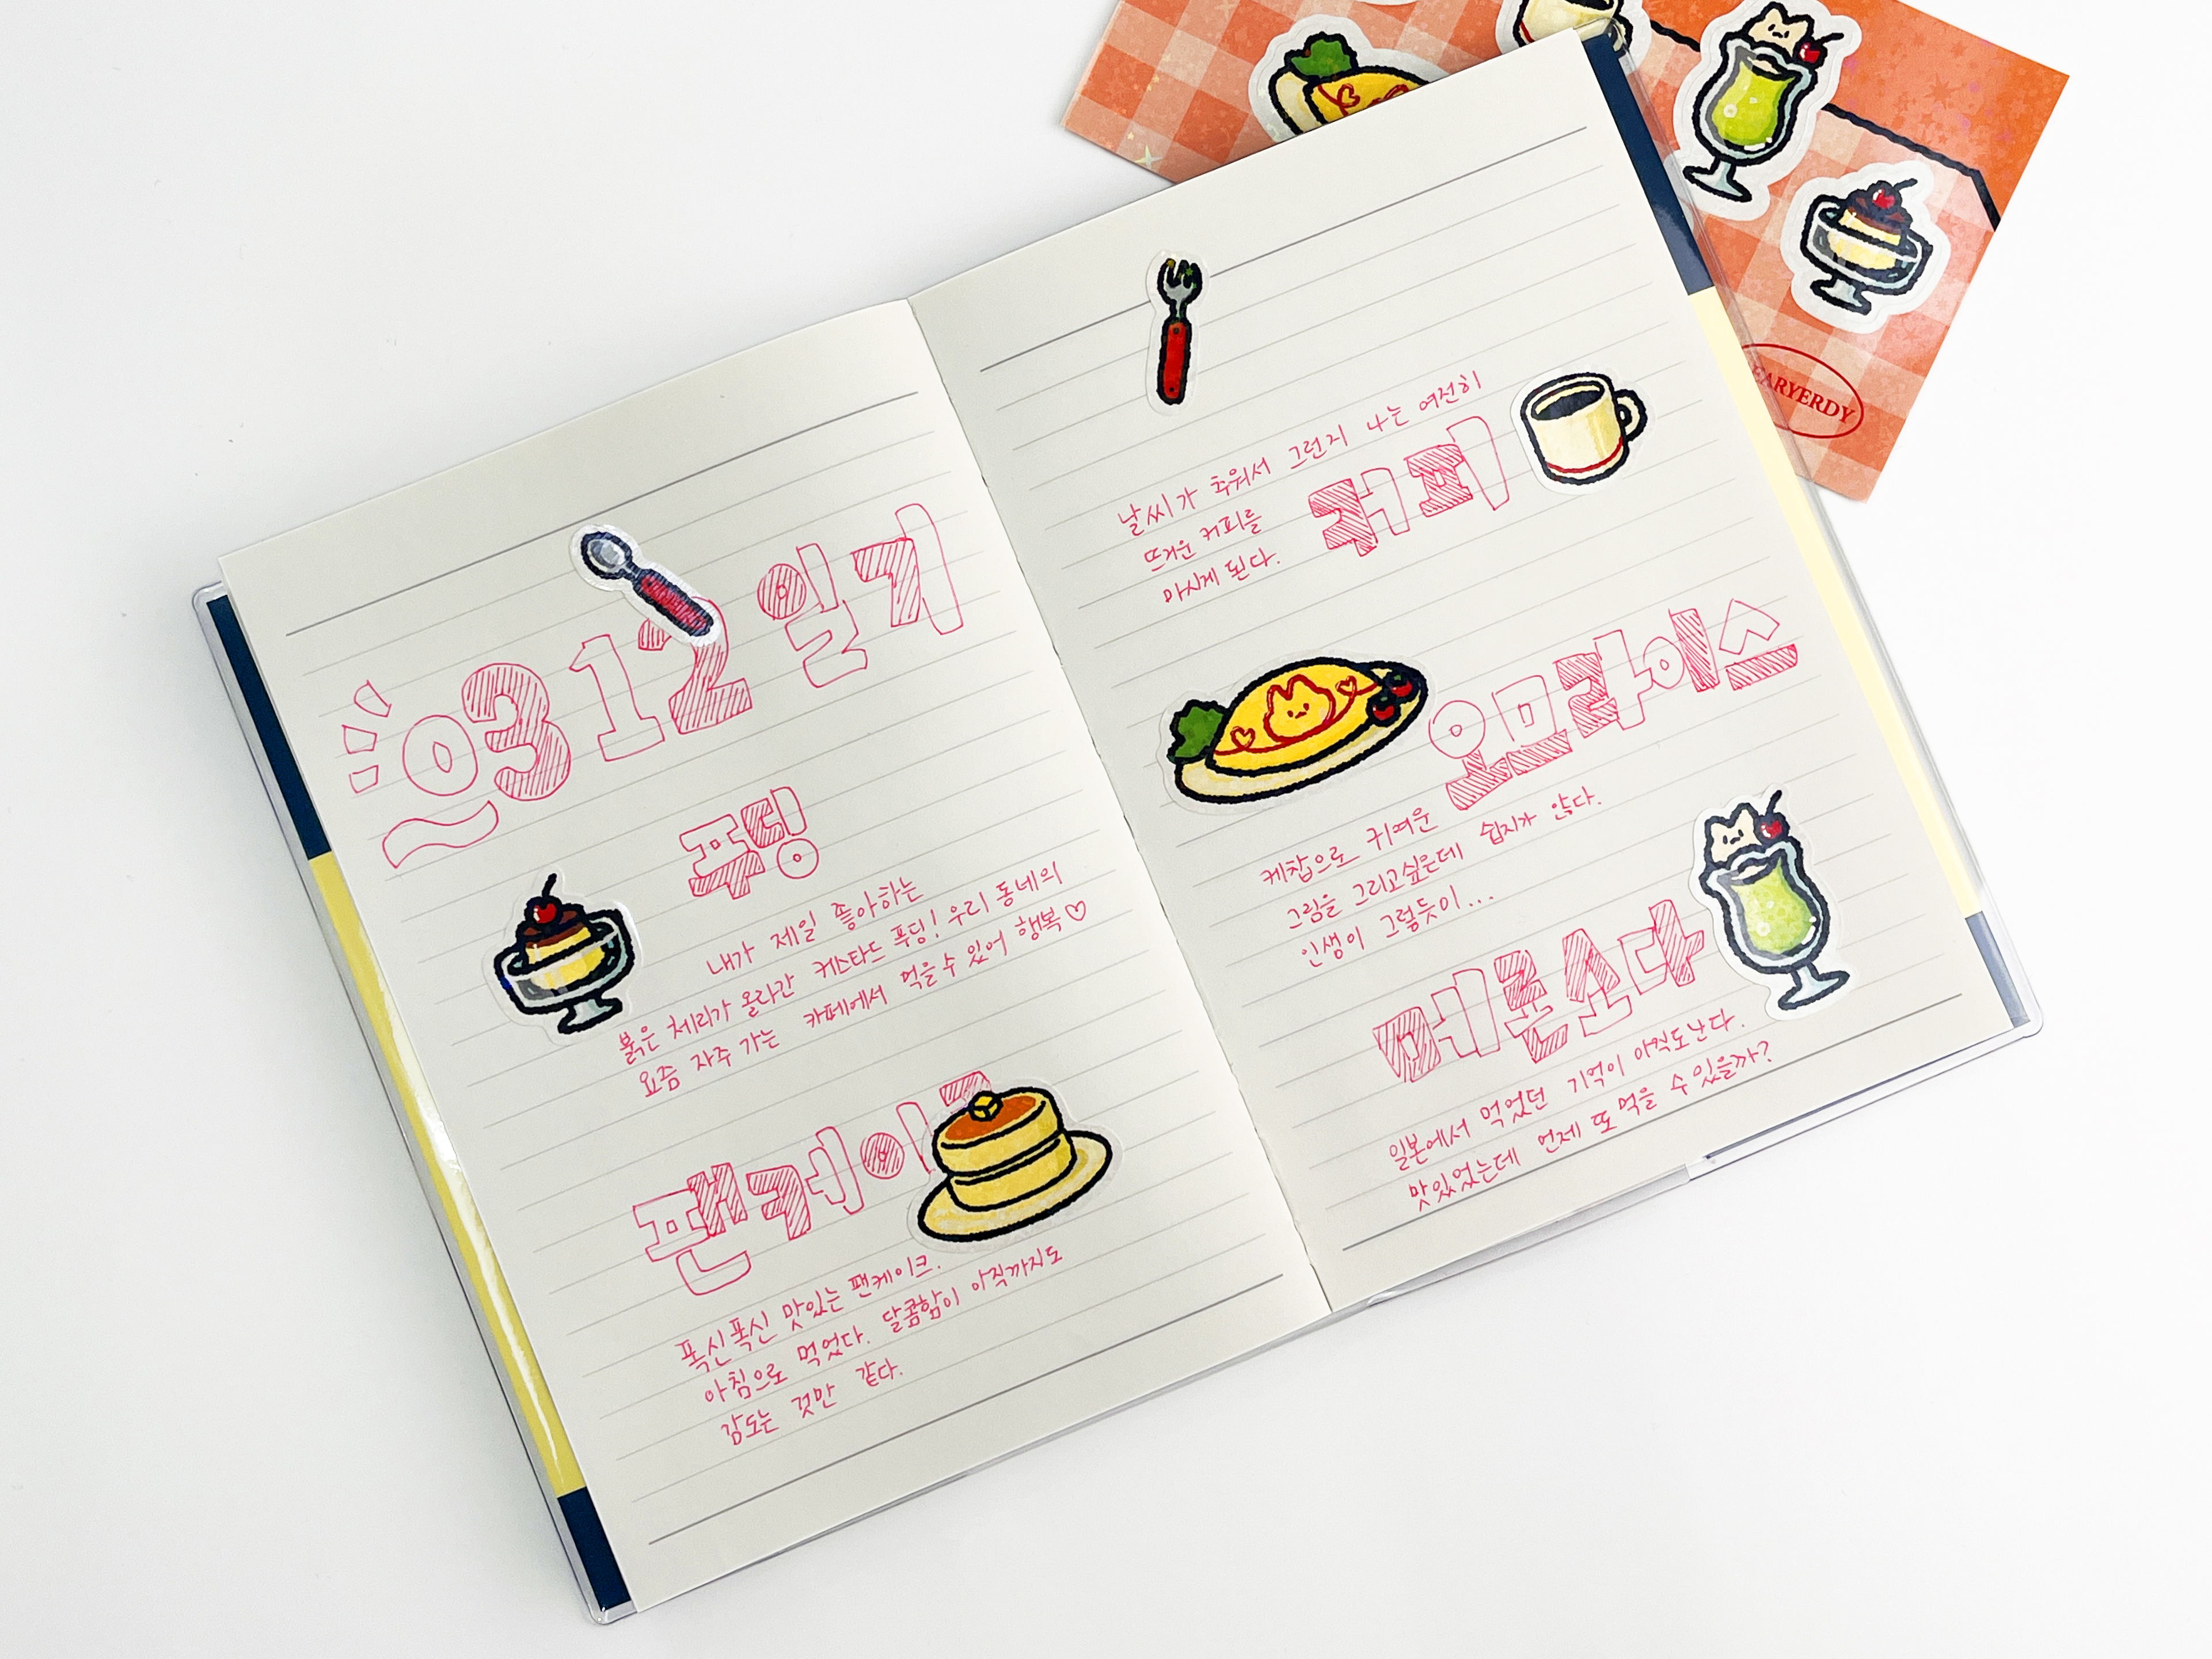 0312 일기
푸딩
내가 제일 좋아하는
붉은 체리가 올라간 커스타드 푸딩! 우리 동네의
요즘 자주 가는 카페에서 먹을 수 있어 행복♡
팬케이크
폭신폭신 맛있는 팬케이크.
아침으로 먹었다. 달콤함이 아직까지도
감도는 것만 같다.
날씨가 추워서 그런지 나는 여전히
뜨거운 커피를
마시게 된다.
커피
오므라이스
케찹으로 귀여운
그림을 그리고싶은데 쉽지가 않다.
인생이 그렇듯이...
메론소다
일본에서 먹었던 기억이 아직도난다.
맛있었는데 언제 또 먹을 수 있을까?
EARYERDY